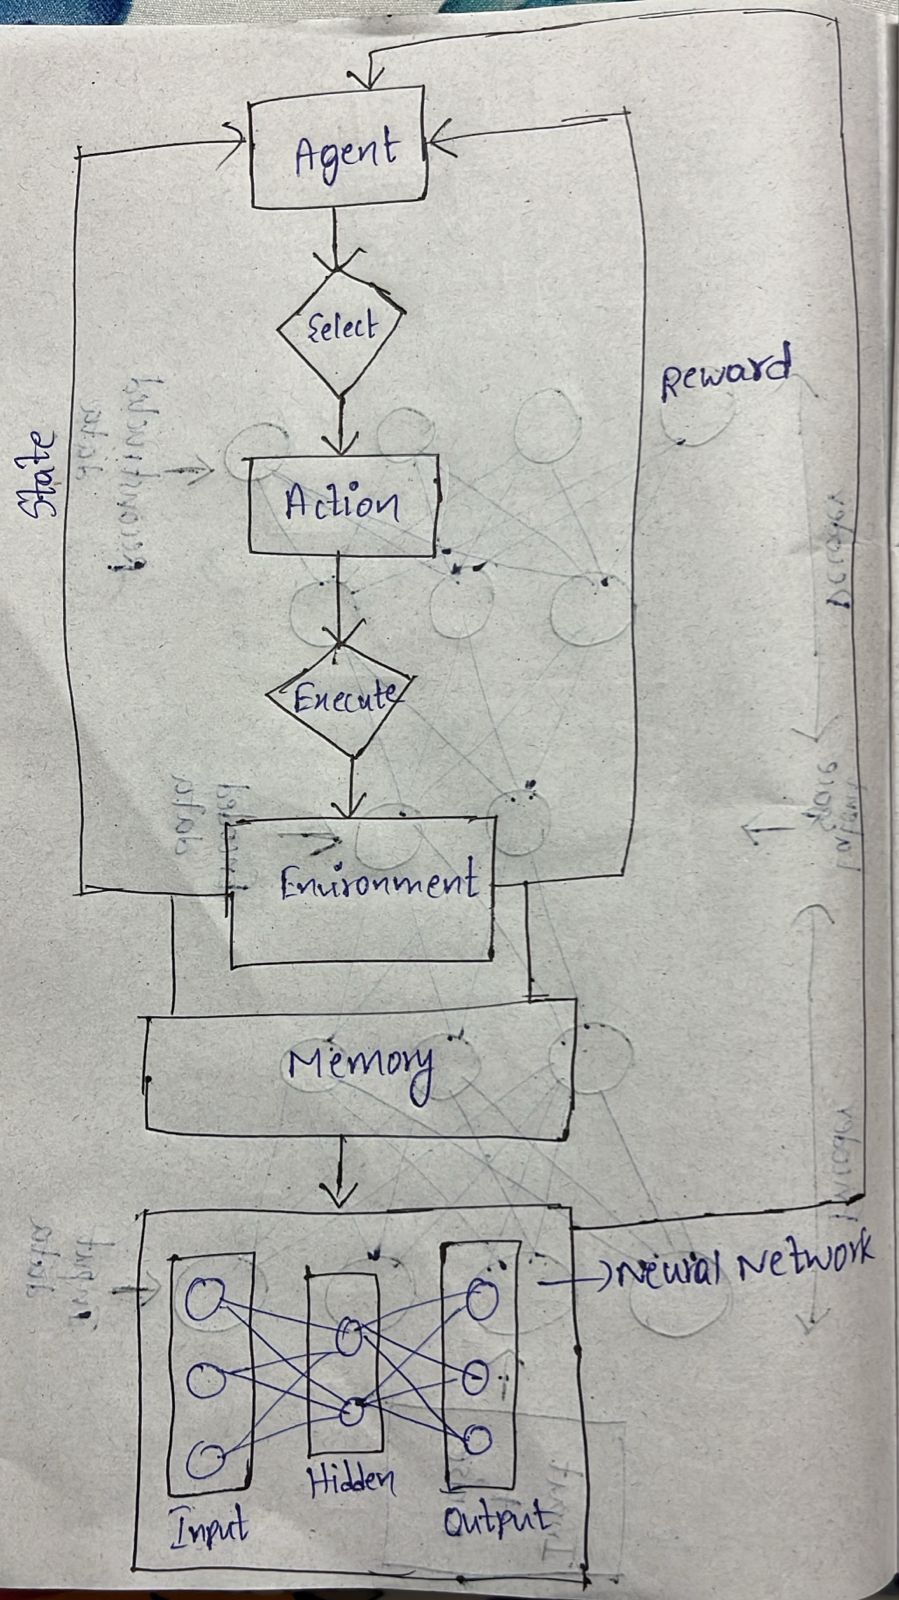 Agent
Select
Reward
State
Action
Execute
Environment
Memory
Neural Network
Input
Hidden
Output